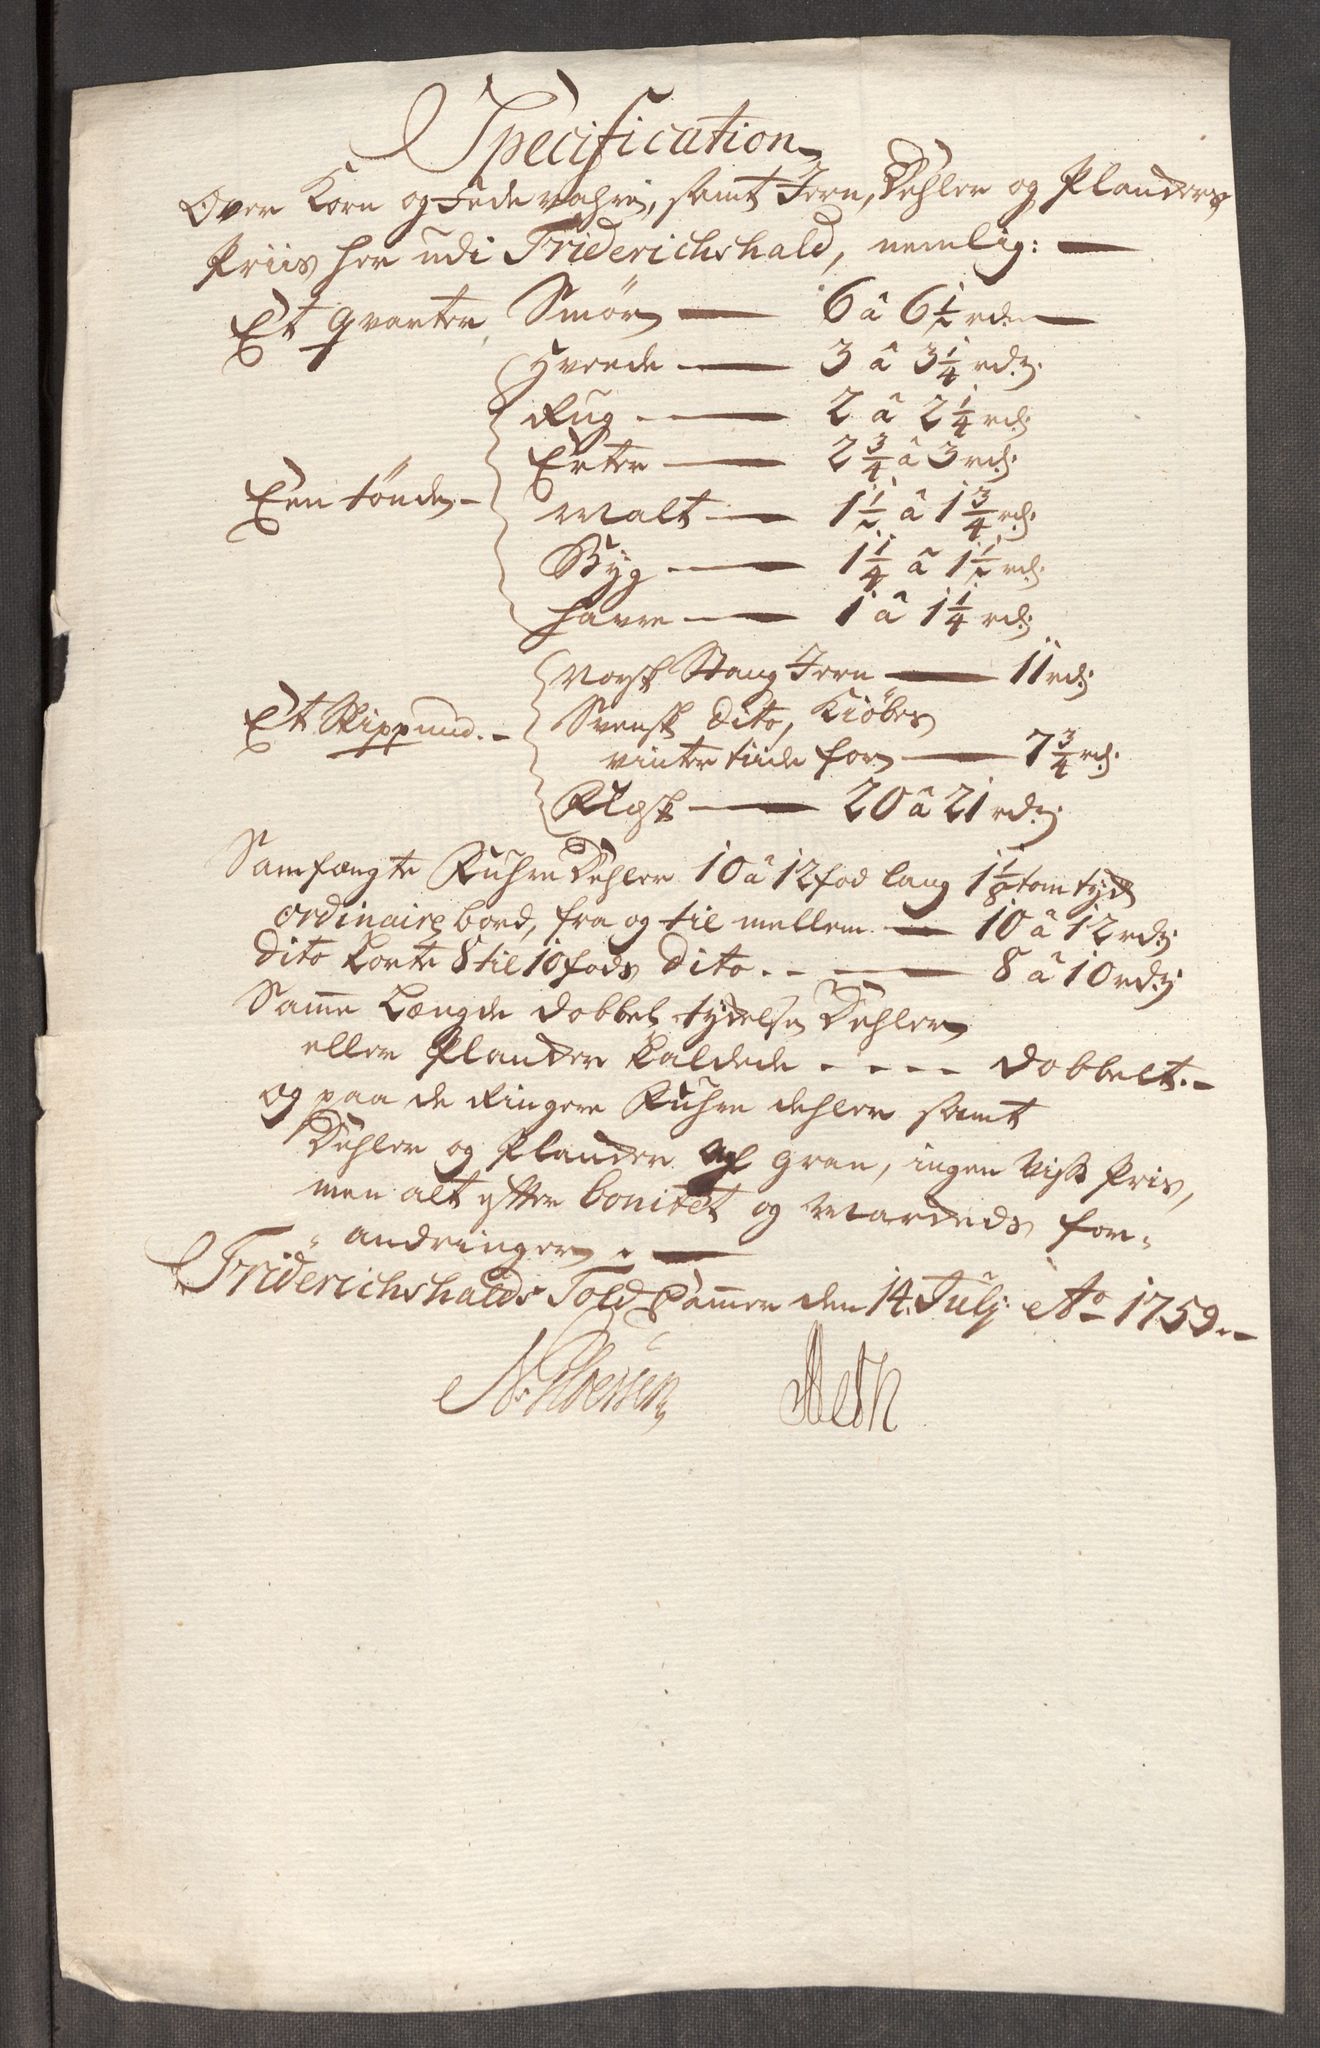 Specification
Over Korn og Fede vahre, samt Jern, Dehler og Planckers
Priis her udi Friderichshald, nemlig:
Et qvarter Smör — 6 â 6 1/2 rd.
Hvede — 3 â 3 1/4 rd.
Rug — 2 â 2 1/4 rd.
Erter — 2 3/4 â 3 rd.
Een tönde — Malt — 1 1/2 â 1 3/4 rd.
Byg — 1 1/4 â 1 1/2 rd.
Havre — 1 â 1 1/4 rd.
Norsk Stang Jern — 11 rd.
Et Skippund. — Svensk dito, Kiöbes
vinter tiide for — 7 3/4 rd.
Flesk — 20 â 21 rd.
Samfængte Fuhre Dehler 10 â 12 fod lang 1 1/8 tom tyck
ordinaire bord, fra og til mellem — 10 â 12 rd.
dito korte 8 til 10 fods dito. — 8 â 10 rd.
Samme Længde dobbelt tydelse Dehler
eller Plancker kaldede - - - - dobbelt. -
og paa de Ringere Fuhre dehler samt
Dehler og Plancker af gran, ingen vist Pris,
men alt efter bonitet og Marckeds for-
andringer. —
Friderichshalds Told Cammer den 14. Julj Ao 1759. -